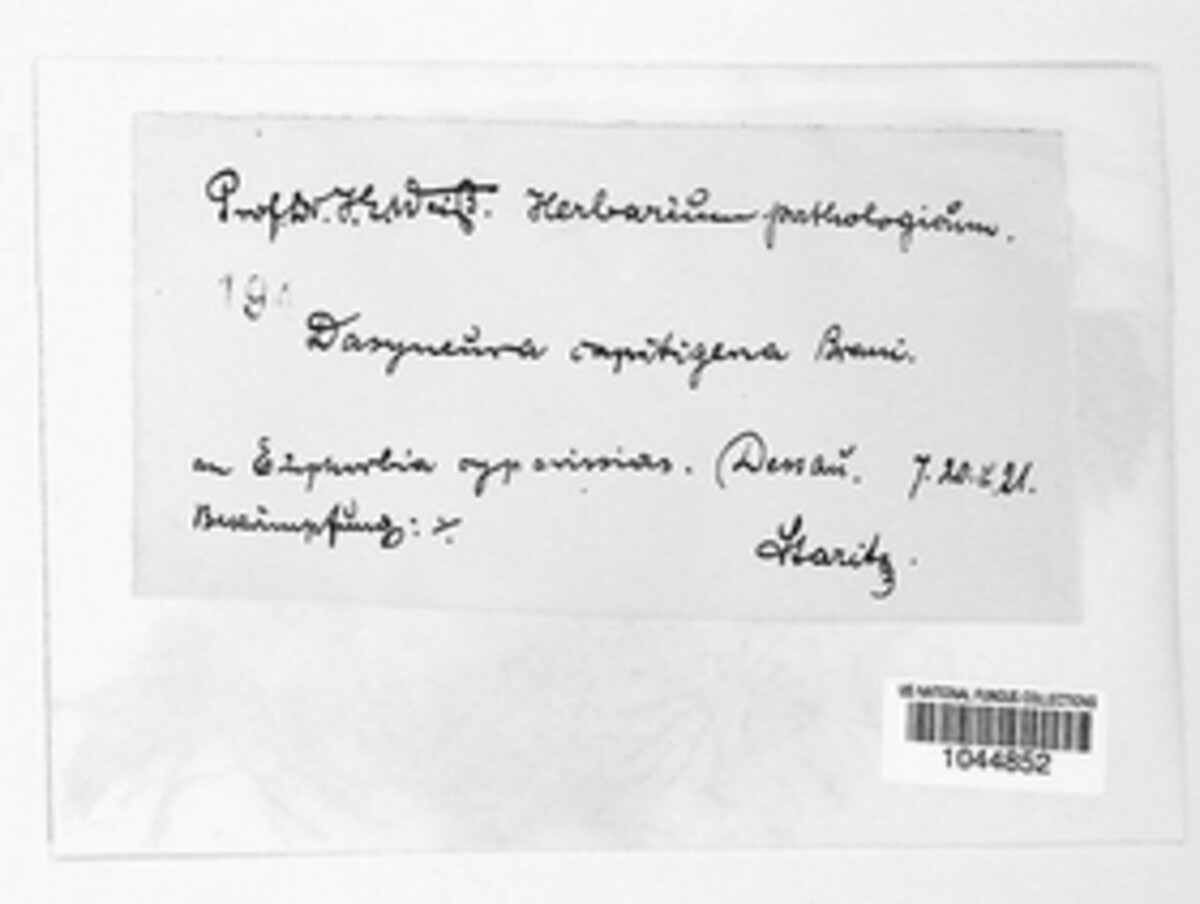 Prof. Dr. H. E. Weiß. Herbarium pathologicum.
Dasyneura capitigena Bremi.
an Euphorbia cyparissias. Dessau. 7. 20. 5. 21.
Bekämpfung: ./.
Staritz.
US NATIONAL FUNGUS COLLECTIONS
1044852